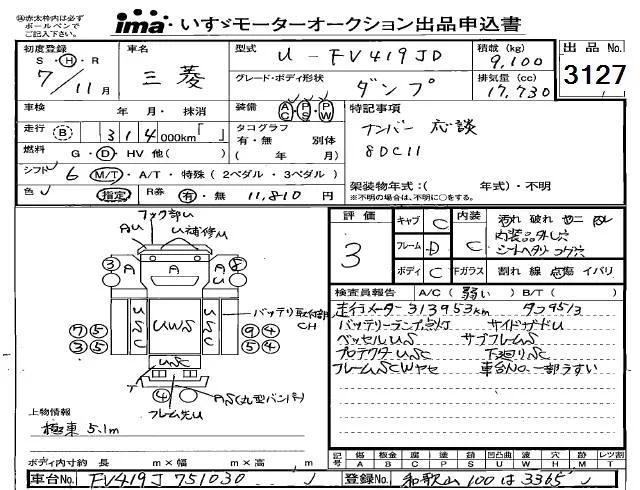 ㊟赤太枠内は必ず
ボールペンで
ご記入下さい。
ima・いすゞモーターオークション出品申込書
初度登録
S・H・R
7/11月
車名
三菱
型式 U-FV419JD
グレード・ボディ形状
ダンプ
積載(kg)
9,100
排気量(cc)
17,730
出品No.
3127
車検 年 月・抹消
装備 AC PS PW
走行 B 314000km「 」
タコグラフ
有・無 別体
( 年 月)
燃料 G・D・HV 他( )
シフト 6 M/T・A/T・特殊(2ペダル・3ペダル)
色 指定 R券 有・無 11,810円
特記事項
ナンバー 応談
8DC11
架装物年式:( 年式)・不明
※不明の場合は、不明に○をする。
フック部U
AU U補修U
③ A A A
USC UWS USC
バッテリ取付部
CH
⑦⑤ ⑨④
③⑤ ⑤④
USC
T
④
AS(丸型バンパ)
フレーム先U
上物情報
極東 5.1m
ボディ内寸約 長 m×幅 m×高 m
車台No. FV419J 751030
評価
3
キャブ C
フレーム D
ボディ C
内装 C
汚れ 破れ ヤニ
内装品外し穴
シートヘタリ コゲ穴
Fガラス 割れ 線 点傷 イバリ
検査員報告 A/C(弱い) B/T( )
走行メーター313953km タコ95/3
バッテリーランプ点灯 サイドザドU
ベッセルUSC サブフレームS
プロテクタUSC 下廻りSC
フレームSCWヤセ 車台No.一部うすい
記号 傷 板金 腐 塗 錆 凹凸曲 波 穴 目 レツ割
A B C P S U W H M T
登録No. 和歌山 100 は 3365